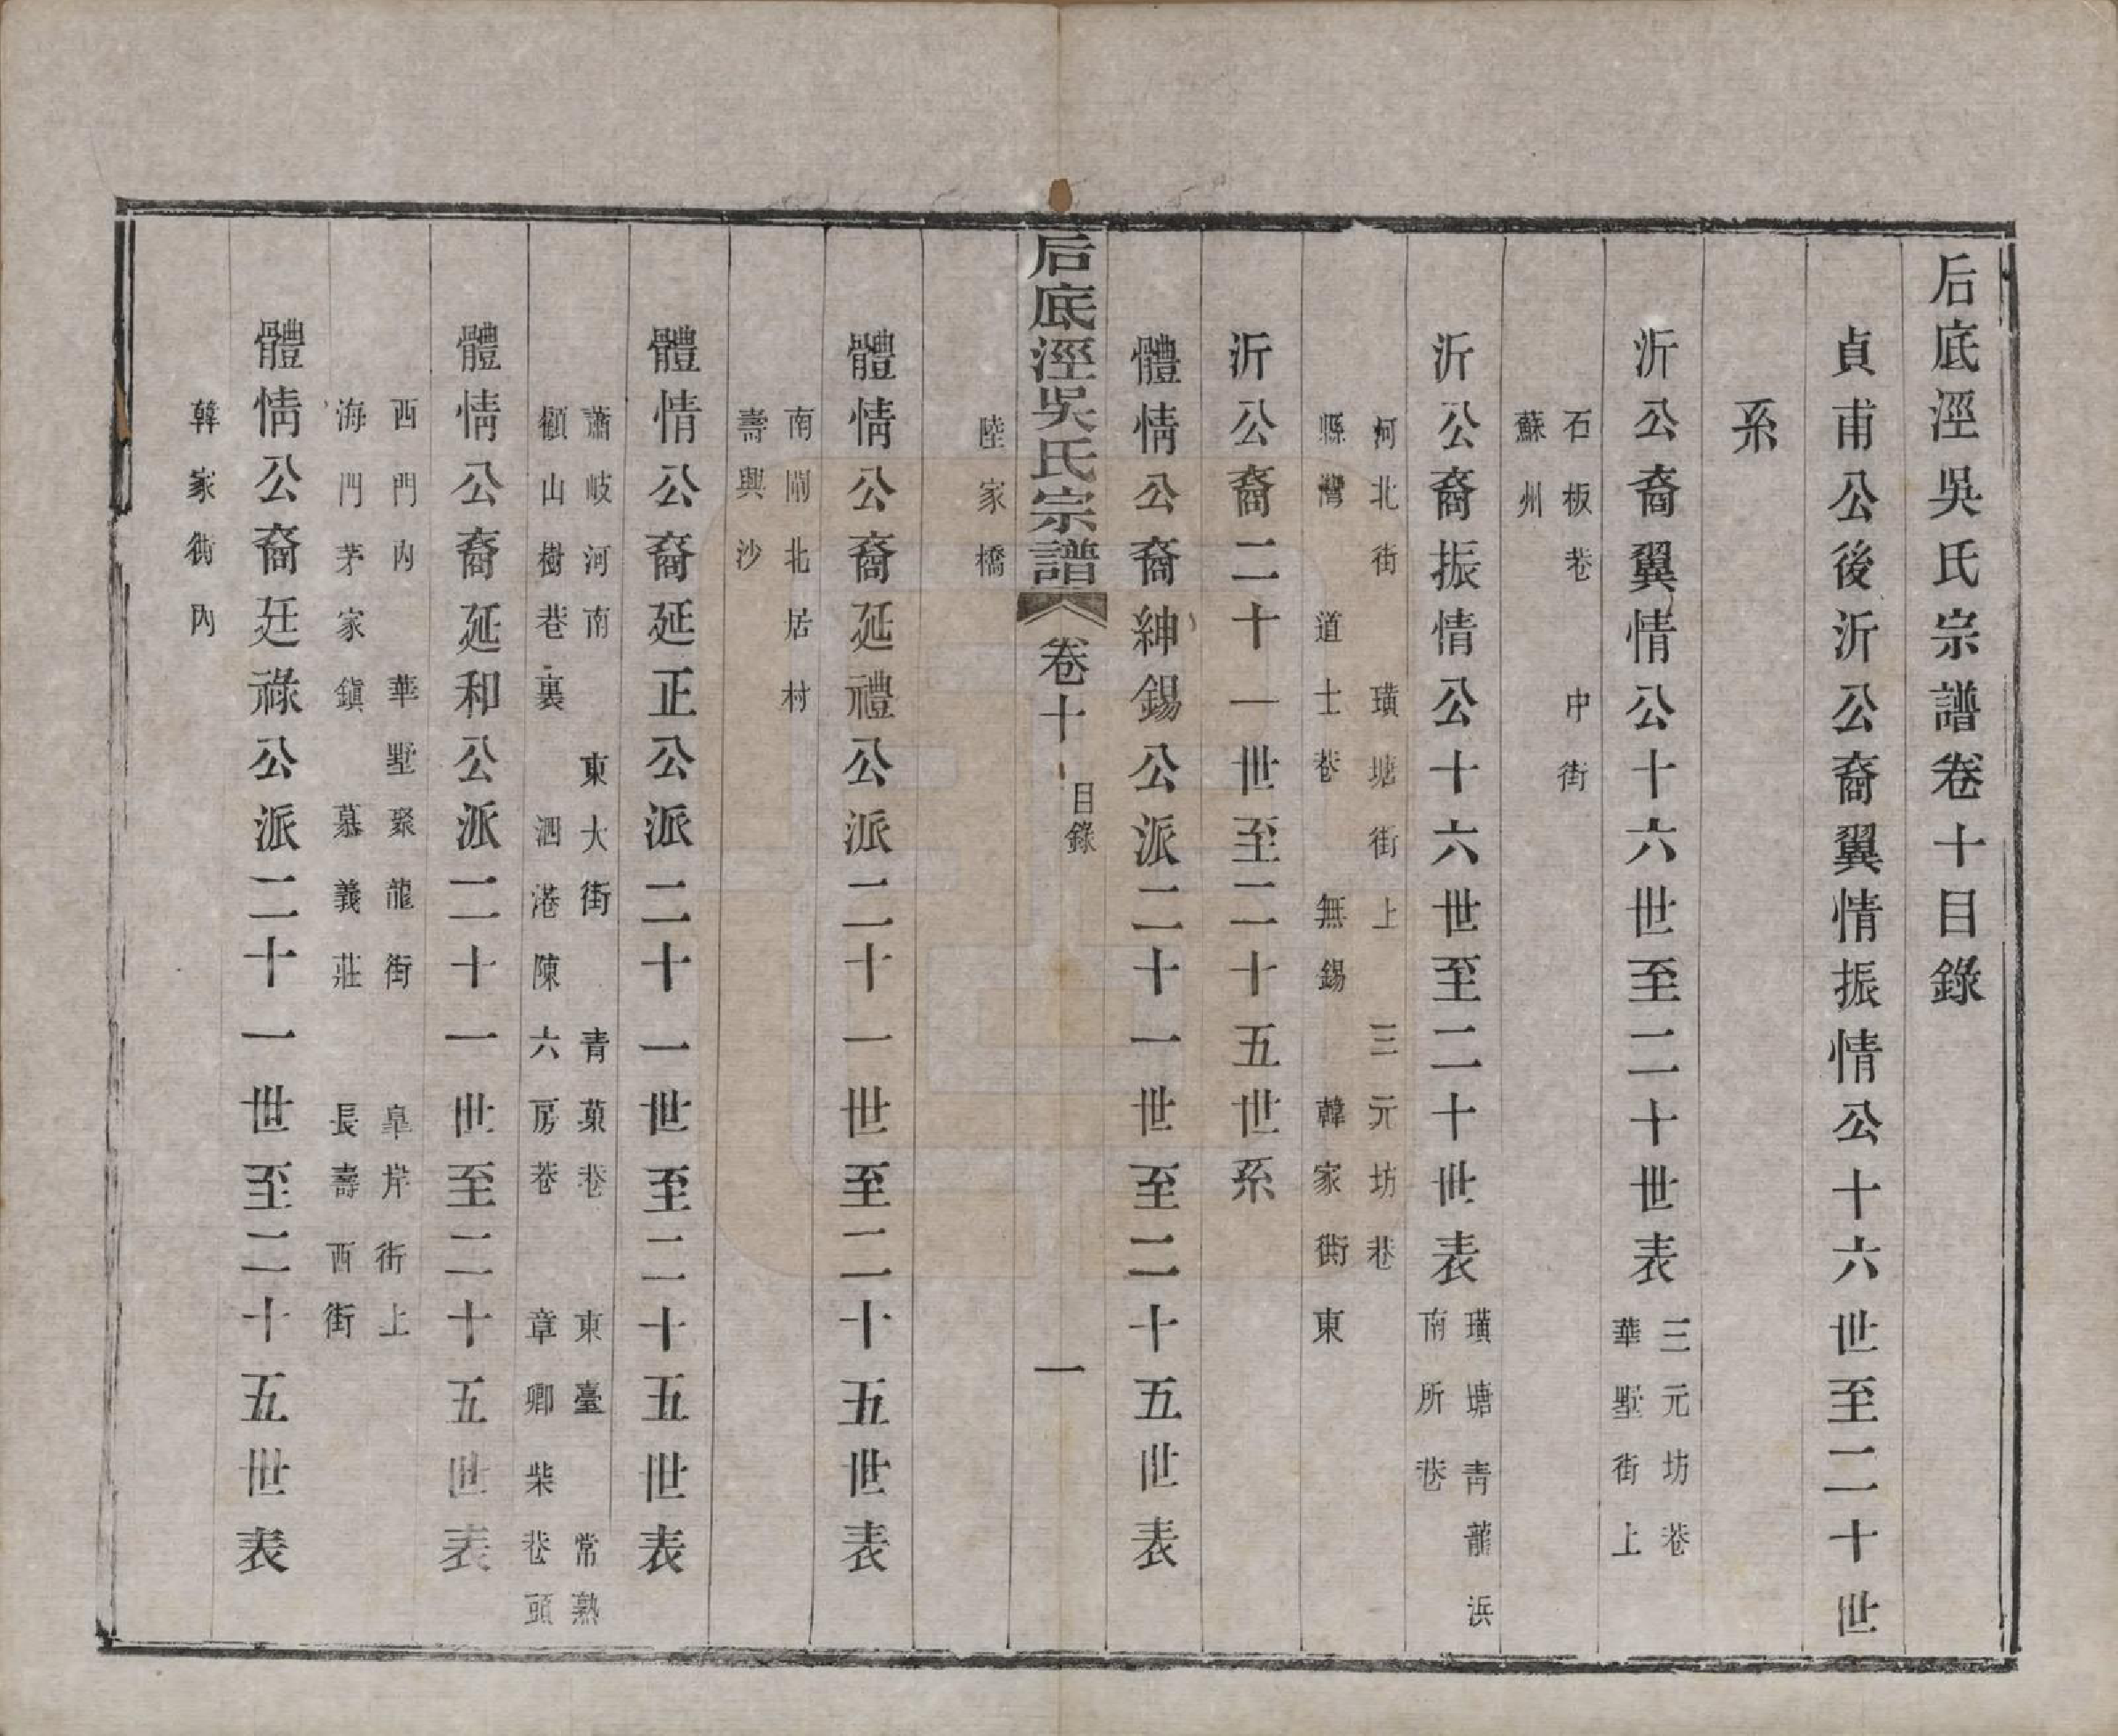 后底涇吳氏宗譜卷十目錄
貞甫公後沂公裔翼情振情公十六世至二十世
系
沂公裔翼情公十六世至二十世表
三元坊巷
華墅街上
石板巷 中街
蘇州
沂公裔振情公十六世至二十世表
璜塘青龍浜
南所巷
河北街 璜塘街上 三元坊巷
縣灣 道士巷 無錫 韓家衖東
沂公裔二十一世至二十五世系
體情公裔紳錫公派二十一世至二十五世表
后底涇吳氏宗譜 卷十 目錄 一
陸家橋
體情公裔延禮公派二十一世至二十五世表
南閘北居村
壽興沙
體情公裔延正公派二十一世至二十五世表
蕭岐河南 東大街 青菓巷 東臺 常熟
顧山樹巷裏 泗港陳六房巷 章卿柴巷頭
體情公裔延和公派二十一世至二十五世表
西門內 華墅聚龍街 阜岸街上
海門茅家鎮 慕義莊 長壽西街
體情公裔廷祿公派二十一世至二十五世表
韓家衖內